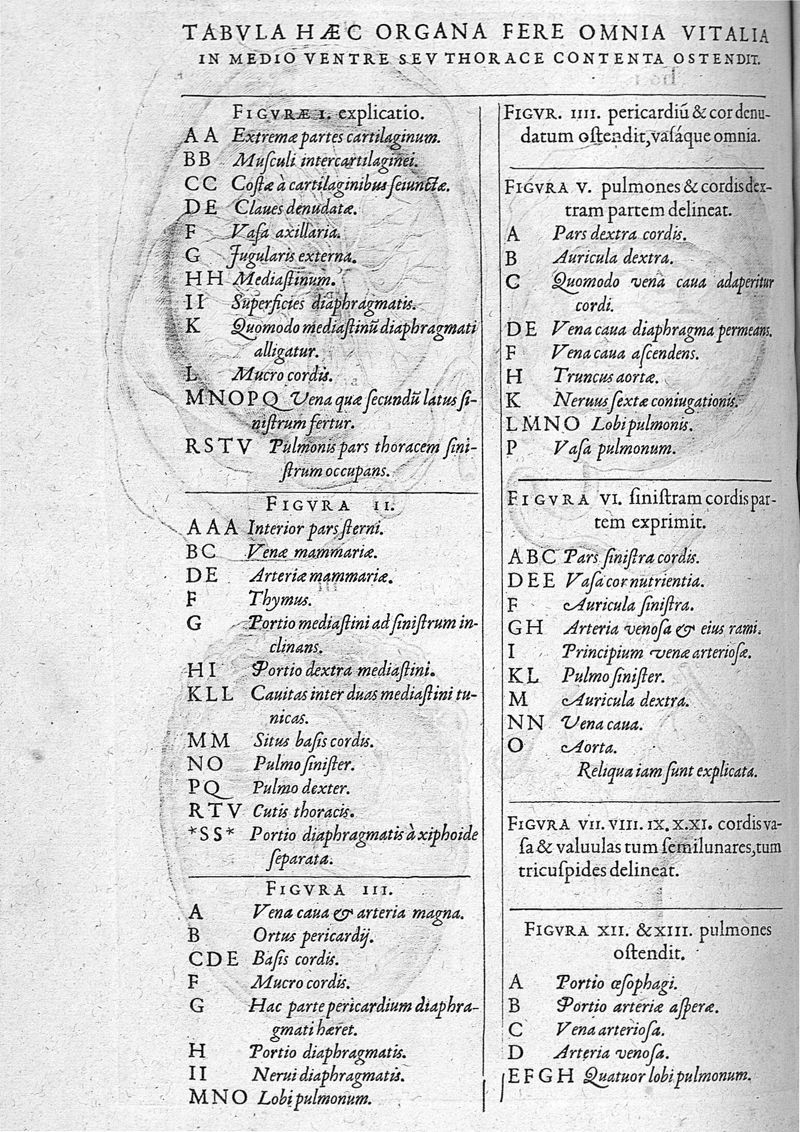 TABVLA HÆC ORGANA FERE OMNIA VITALIA
IN MEDIO VENTRE SEV THORACE CONTENTA OSTENDIT.
FIGVRÆ I. explicatio.
A A Extremæ partes cartilaginum.
B B Muſculi intercartilaginei.
C C Coſtæ à cartilaginibus ſeiunctæ.
D E Claues denudatæ.
F Vaſa axillaria.
G Jugularis externa.
H H Mediaſtinum.
I I Superficies diaphragmatis.
K Quomodo mediaſtinũ diaphragmati
alligatur.
L Mucro cordis.
M N O P Q Vena quæ ſecundũ latus ſi-
niſtrum fertur.
R S T V Pulmonis pars thoracem ſini-
ſtrum occupans.
FIGVRA II.
A A A Interior pars ſterni.
B C Venæ mammariæ.
D E Arteriæ mammariæ.
F Thymus.
G Portio mediaſtini ad ſiniſtrum in-
clinans.
H I Portio dextra mediaſtini.
K L L Cauitas inter duas mediaſtini tu-
nicas.
M M Situs baſis cordis.
N O Pulmo ſiniſter.
P Q Pulmo dexter.
R T V Cutis thoracis.
*S S* Portio diaphragmatis à xiphoide
ſeparata.
FIGVRA III.
A Vena caua & arteria magna.
B Ortus pericardij.
C D E Baſis cordis.
F Mucro cordis.
G Hac parte pericardium diaphra-
gmati hæret.
H Portio diaphragmatis.
I I Nerui diaphragmatis.
M N O Lobi pulmonum.
FIGVR. IIII. pericardiũ & cor denu-
datum oſtendit, vaſáque omnia.
FIGVRA V. pulmones & cordis dex-
tram partem delineat.
A Pars dextra cordis.
B Auricula dextra.
C Quomodo vena caua adaperitur
cordi.
D E Vena caua diaphragma permeans.
F Vena caua aſcendens.
H Truncus aortæ.
K Neruus ſextæ coniugationis.
L M N O Lobi pulmonis.
P Vaſa pulmonum.
FIGVRA VI. ſiniſtram cordis par-
tem exprimit.
A B C Pars ſiniſtra cordis.
D E E Vaſa cor nutrientia.
F Auricula ſiniſtra.
G H Arteria venoſa & eius rami.
I Principium venæ arterioſæ.
K L Pulmo ſiniſter.
M Auricula dextra.
N N Vena caua.
O Aorta.
Reliqua iam ſunt explicata.
FIGVRA VII. VIII. IX. X. XI. cordis va-
ſa & valuulas tum ſemilunares, tum
tricuſpides delineat.
FIGVRA XII. & XIII. pulmones
oſtendit.
A Portio œſophagi.
B Portio arteriæ aſperæ.
C Vena arterioſa.
D Arteria venoſa.
E F G H Quatuor lobi pulmonum.